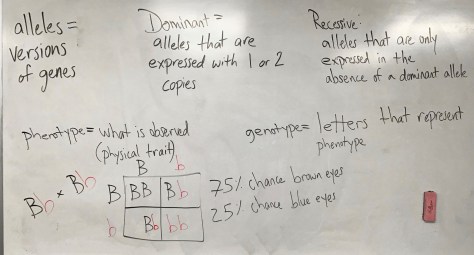 alleles =
versions
of genes
Dominant =
alleles that are
expressed with 1 or 2
copies
Recessive:
alleles that are only
expressed in the
absence of a dominant allele
phenotype = what is observed
(physical trait)
genotype = letters that represent
phenotype
Bb × Bb
B b
B BB Bb
b Bb bb
75% chance brown eyes
25% chance blue eyes